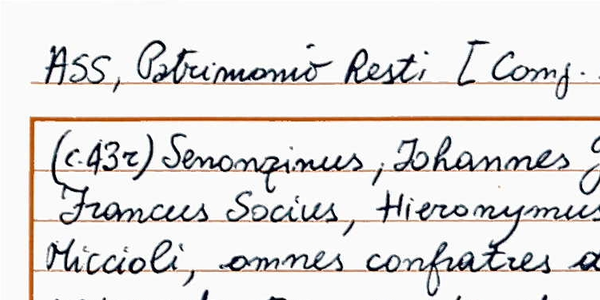 ASS, Patrimonio Resti [Comg.
(c.43r) Senonzinus, Johannes
Francus Socius, Hieronymus
Miccioli, omnes confratres